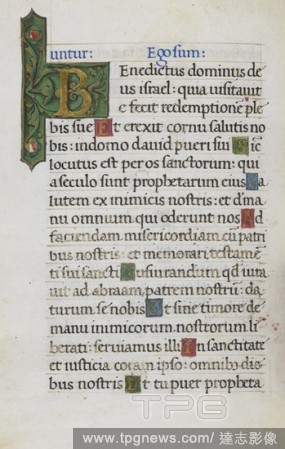 untur: Ego sum:
Benedictus dominus de
us israel: quia uisitauit
e fecit redemptionẽ ple
bis sue Et erexit cornu salutis no
bis: in domo dauid pueri sui Sic
locutus est per os sanctorum: qui
a seculo sunt prophetarum eius Sa
lutem ex inimicis nostris: et d'ma
nu omnium qui oderunt nos Ad
faciendam misericordiam cũ patri
bus nostris: et memorari testamẽ
ti sui sancti Iusiurandum qd' iura
uit ad abraam patrem nostrũ: da
turum se nobis Ut sine timore de
manu inimicorum nostrorum li
berati: seruiamus illi In sanctitate
et iusticia coram ipso: omnibꝰ die
bus nostris Et tu puer propheta
TPG
www.tpgnews.com / 達志影像